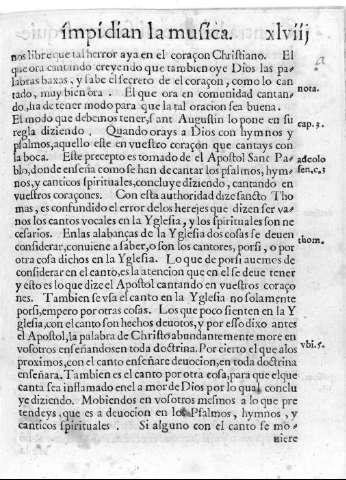 impidian la musica. xlviij
nos libre que tal herror aya en el coraçon Christiano. El
que ora cantando creyendo que tambien oye Dios las pa-
labras baxas, y sabe el secreto de el coraçon, como lo can
tado, muy bien ora. El que ora en comunidad cantan-
nota.
do, ha de tener modo para que la tal oracion sea buena.
El modo que deuemos tener, sant Augustin lo pone en su
cap. 3.
regla diziendo. Quando orays a Dios con hymnos y
psalmos, aquello este en vuestro coraçon que cantays con
la boca. Este precepto es tomado de el Apostol Sant Pa-
adcolo
blo, donde enseña como se han de cantar los psalmos, hym-
sen, c. 3
nos, y canticos spirituales, concluye diziendo, cantando en
vuestros coraçones. Con esta authoridad dize sancto Tho
mas, es confundido el error delos herejes que dizen ser va-
nos los cantos vocales en la Yglesia, y los spirituales son ne
cesarios. Enlas alabanças de la Yglesia dos cosas se deuen
considerar, conuiene a saber, o son los cantores, por si, o por
thom.
otra cosa dichos en la Yglesia. Lo que de por si auemos de
considerar en el canto, es la atencion que en el se deue tener
y esto es lo que dize el Apostol cantando en vuestros coraço
nes. Tambien se vsa el canto en la Yglesia no solamente
por si, empero por otras cosas. Los que poco sienten en la Y
glesia, con el canto son hechos deuotos, y por esso dixo antes
el Apostol, la palabra de Christo abundantemente more en
vosotros enseñandos en toda doctrina. Por cierto el que alos
vbi. 5.
proximos, con el canto enseñare deuocion, en toda doctrina
enseñara. Tambien es el canto por otra cosa, para que el que
canta sea inflamado en el amor de Dios por lo qual conclu
ye diziendo. Mobiendos en vosotros mesmos a lo que pre
tendeys, que es a deuocion en los Psalmos, hymnos, y
canticos spirituales. Si alguno con el canto se mo-
uiere